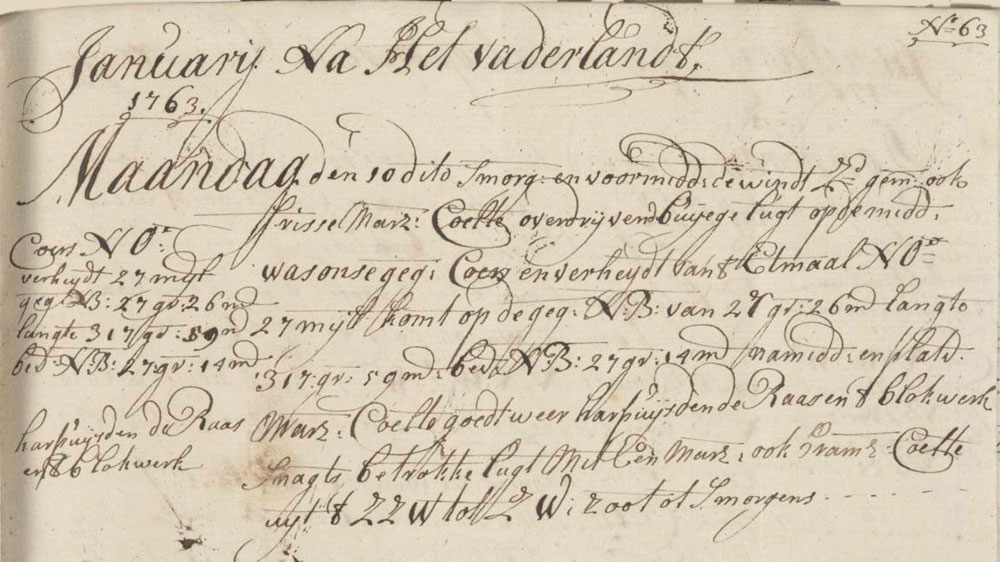 N:o 63
Januarij Na Het vaderlandt,
1763.
Maandag den 10 dito Smorg: en voormidd: de windt Z:d gem: ook
frisse Marz: Coelte overdrijvend buijege lugt op de midd:
Coers NO:t
verheydt 27 mijl
was onse geg: Coers en verheydt van 't Etmaal NO:t
gegt NB: 27 gr: 26 md
27 mijl komt op de geg: NB: van 27 gr: 26 md langte
langte 317 gr: 59 md
bed: NB: 27: gr: 14 md
317: gr: 59 md: bed: NB: 27: gr: 14 md namidd: en plat
harpuijsden de Raas
en 't blokwerk
Marz: Coelte goedt weer harpuijsden de Raas en 't blokwerk
Snagts betrokke lugt Met Een Marz: ook Bramz: Coelte
uijt 't ZZW tot Z W: zoo tot Smorgens